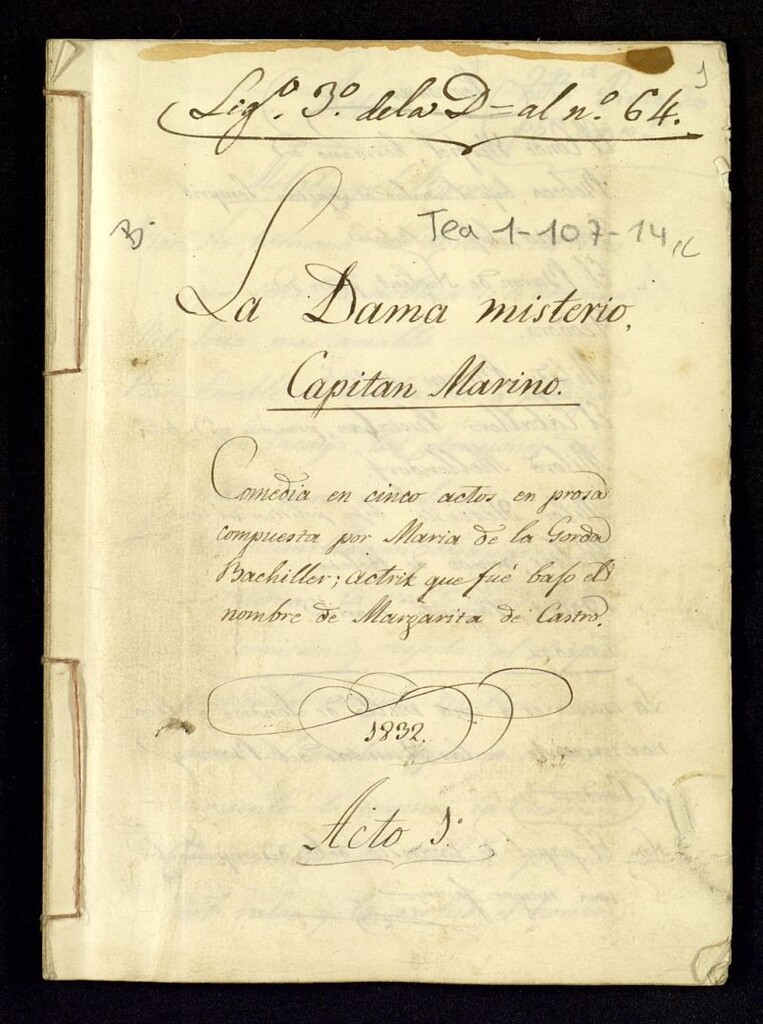 1
Lig.º 3.º dela D= al n.º 64.
Tea 1-107-14
La Dama misterio,
Capitan Marino.
Comedia en cinco actos en prosa
compuesta por Maria de la Gorda
Bachiller; actriz que fué bajo el
nombre de Margarita de Castro.
1832.
Acto 1.º